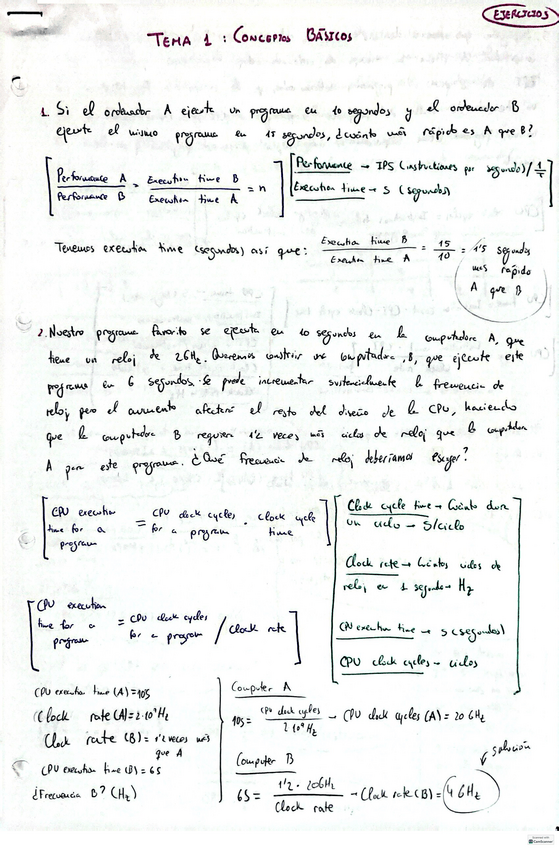 EJERCICIOS
TEMA 1 : CONCEPTOS BÁSICOS
1. Si el ordenador A ejecuta un programa en 10 segundos y el ordenador B
ejecuta el mismo programa en 15 segundos, ¿cuánto más rápido es A que B?
Performance A / Performance B = Execution time B / Execution time A = n
Performance → IPS (instructiones por segundo) / 1/s
Execution time → s (segundos)
Tenemos execution time (segundos) así que: Execution time B / Execution time A = 15/10 = 1'5 segundos
más rápido
A que B
2. Nuestro programa favorito se ejecuta en 10 segundos en la computadora A, que
tiene un reloj de 2GHz. Queremos construir una computadora, B, que ejecute este
programa en 6 segundos. Se puede incrementar sustancialmente la frecuencia de
reloj pero el aumento afectará el resto del diseño de la CPU, haciendo
que la computadora B requiera 1'2 veces más ciclos de reloj que la computadora
A para este programa. ¿Qué frecuencia de reloj deberíamos escoger?
CPU execution time for a program = CPU clock cycles for a program · Clock cycle time
Clock cycle time → Cuánto dura
un ciclo → S/ciclo
Clock rate → Cuántos ciclos de
reloj en 1 segundo → Hz
CPU execution time → s (segundos)
CPU clock cycles → ciclos
CPU execution time for a program = CPU clock cycles for a program / Clock rate
CPU execution time (A) = 10s
Clock rate (A) = 2·10⁹ Hz
Clock rate (B) = 1'2 veces más
que A
CPU execution time (B) = 6s
¿Frecuencia B? (Hz)
Computer A
10s = CPU clock cycles / 2·10⁹ Hz → CPU clock cycles (A) = 20 GHz
Computer B
6s = 1'2 · 20GHz / Clock rate → Clock rate (B) = 4 GHz
solución